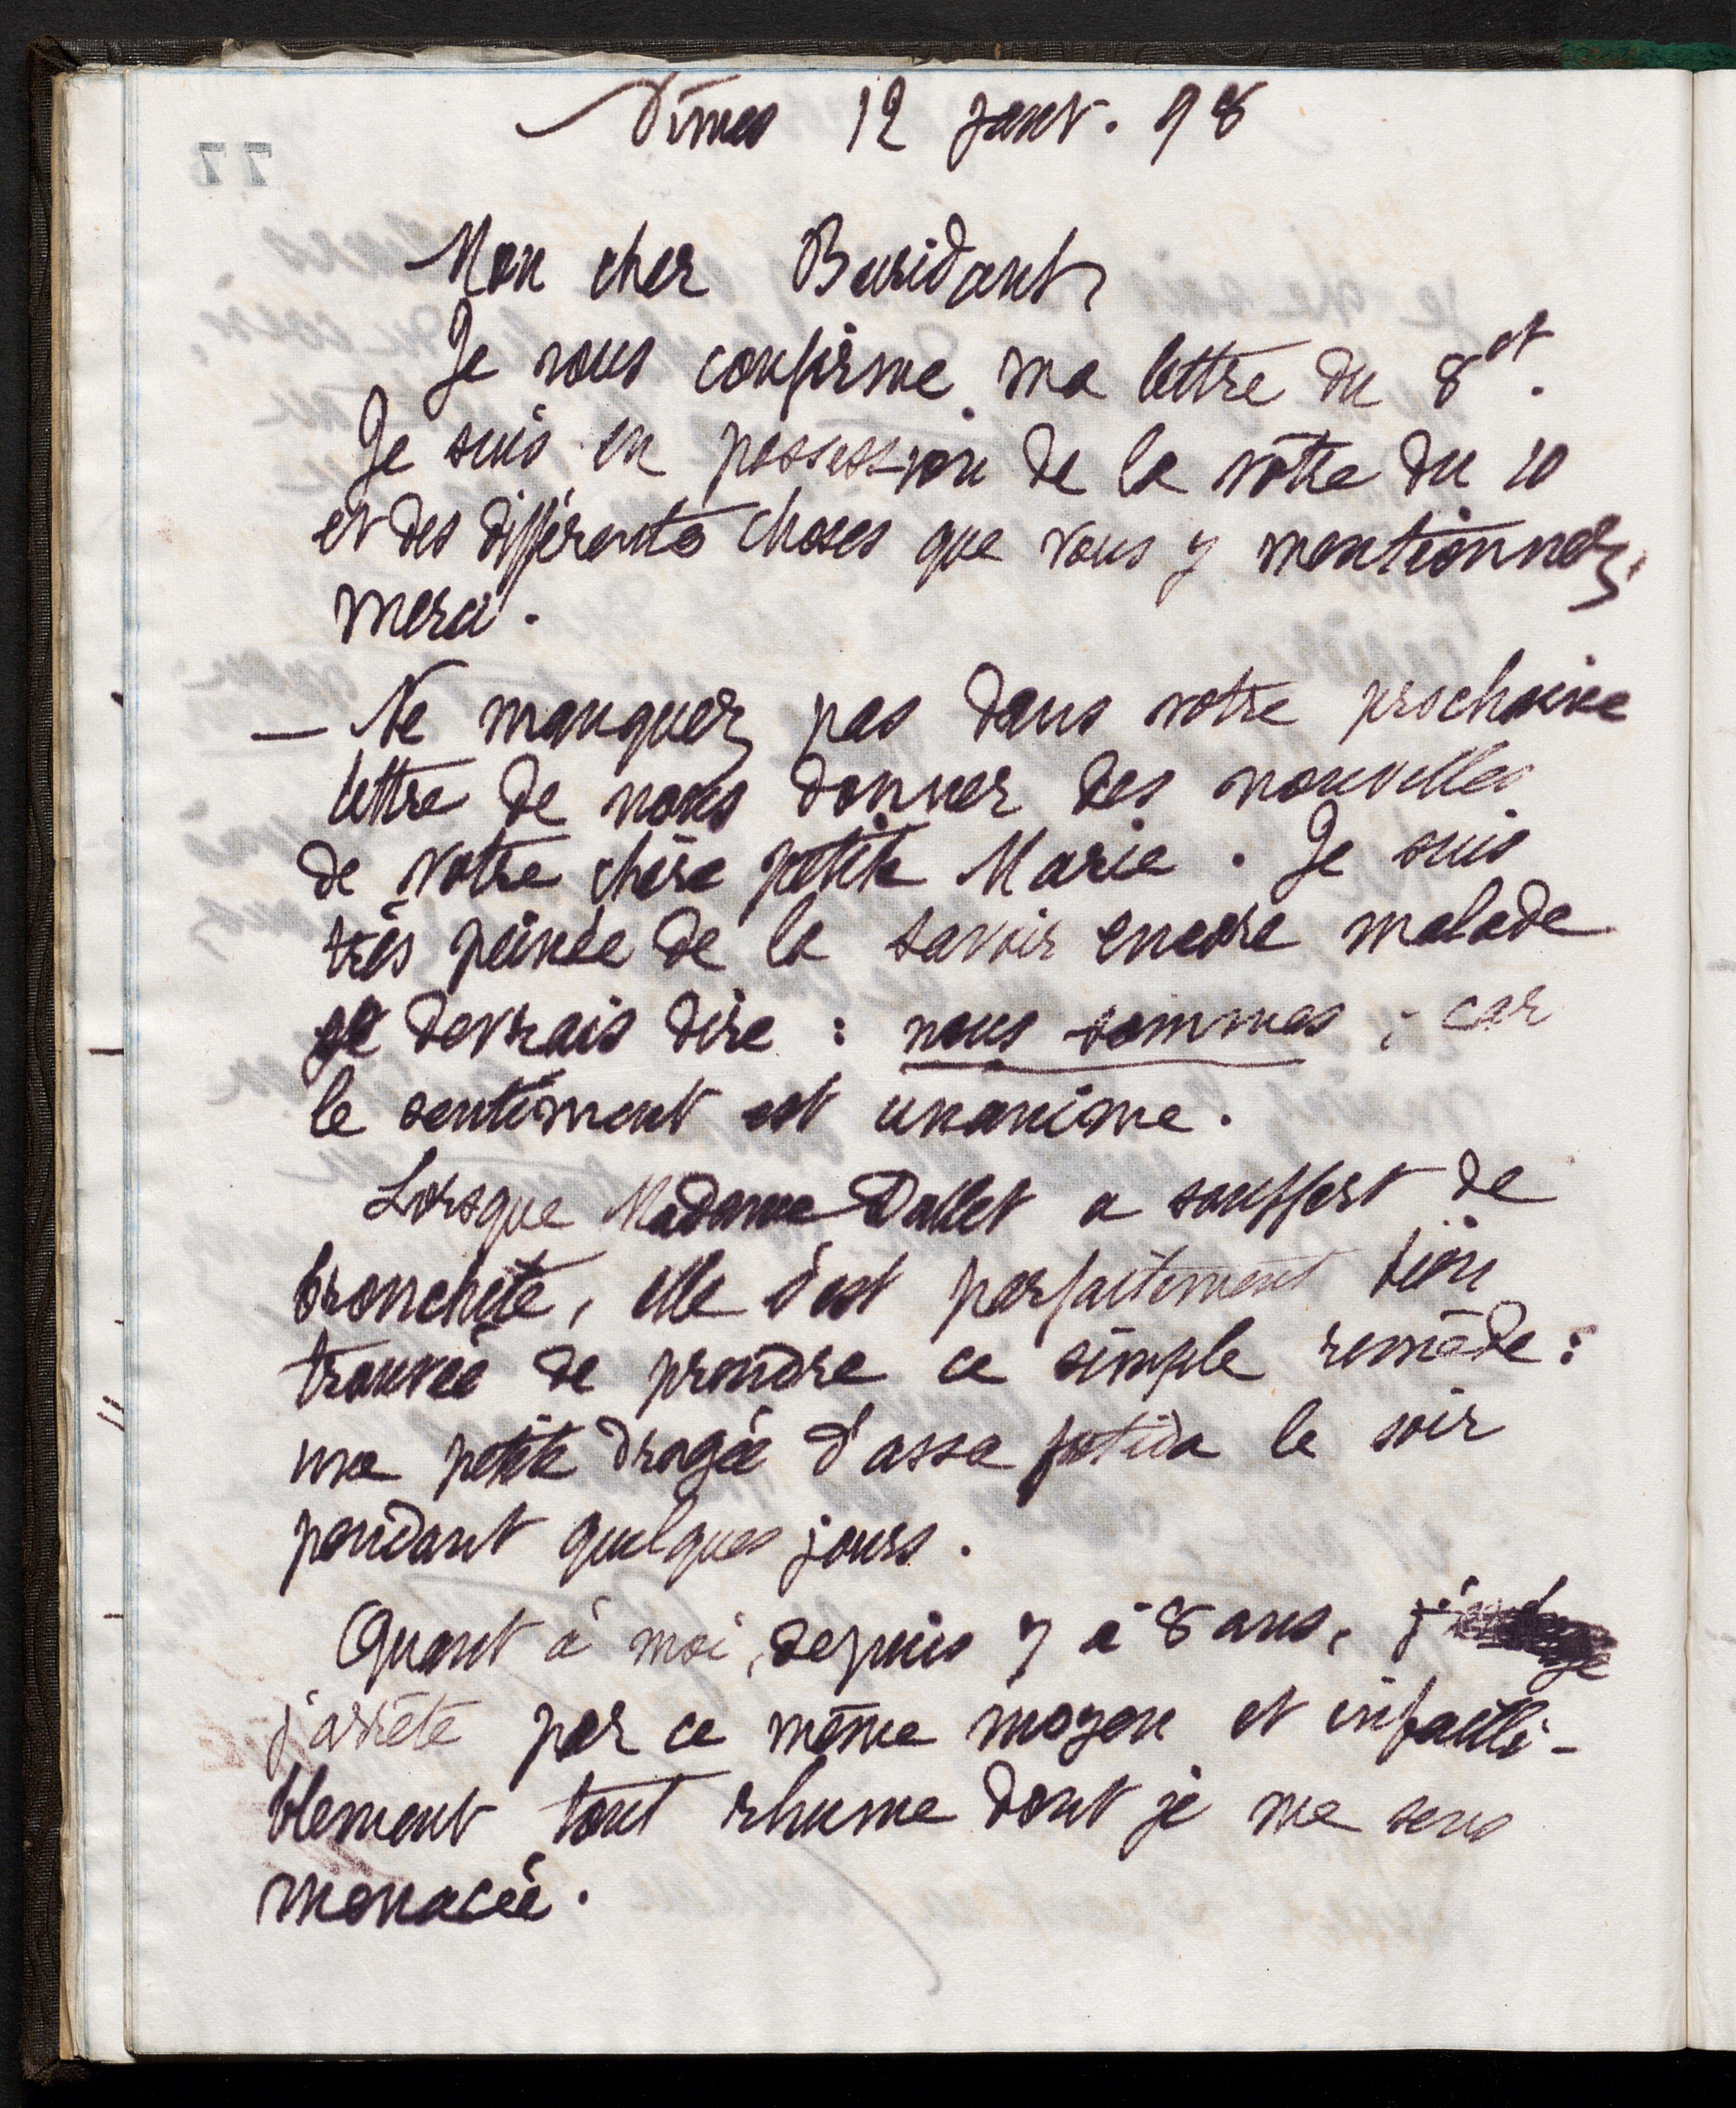 77
Nîmes 12 janv. 98
Mon cher Buridant,
Je vous confirme ma lettre du 8 ct.
Je suis en possession de la vôtre du 10
et des différentes choses que vous y mentionnez,
merci.
— Ne manquez pas dans votre prochaine
lettre de nous donner des nouvelles
de votre chère petite Marie. Je suis
très peinée de la savoir encore malade
je devrais dire : nous sommes ; car
le sentiment est unanime.
Lorsque Madame Dallet a souffert de
bronchite, elle s'est parfaitement bien
trouvée de prendre ce simple remède :
une petite dragée d'assa fœtida le soir
pendant quelques jours.
Quant à moi, depuis 7 à 8 ans,
j'arrête par ce même moyen et infailli-
blement tout rhume dont je me sens
menacée.